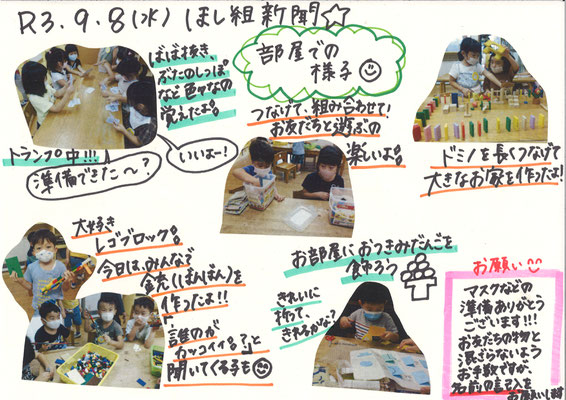 R3.9.8(水) ほし組新聞☆
ばば抜き、
ぶたのしっぽ
など色々なの
覚えたよ。
トランプ中!!!
準備できた～?
いいよー!
部屋での
様子
つなげて、組み合わせて!
お友だちと遊ぶの
楽しいよ。
ドミノを長くつなげて
大きなお家を作ったよ!
大好き
レゴブロック。
今日は、みんなで
銃(ばんばん)を
作ったよ!!
「誰のが
カッコイイ?」と
聞いてくる子も
お部屋におつきみだんごを
飾ろう
きれいに
折って、
きれるかな?
お願い
マスクなどの
準備ありがとう
ございます!!!
お友だちの物と
混ざらないよう
お手数ですが、
名前の記入を
お願いします